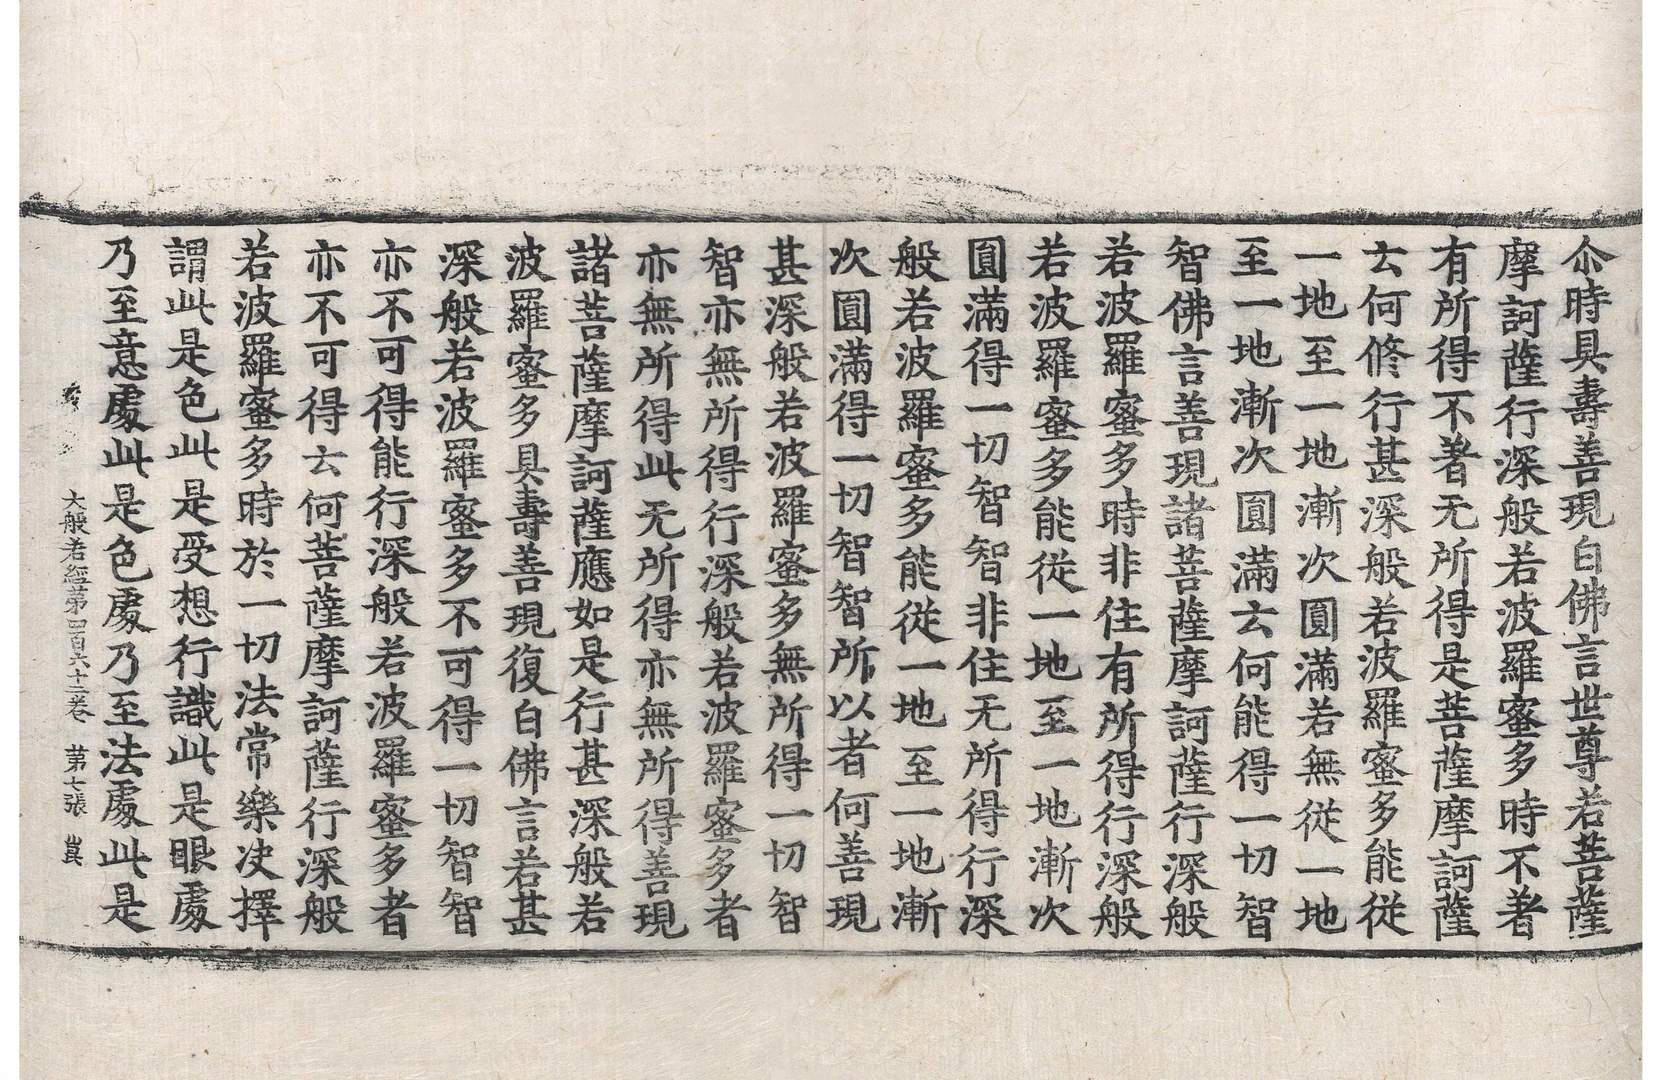 尒時具壽善現白佛言世尊若菩薩
摩訶薩行深般若波羅蜜多時不著
有所得不著无所得是菩薩摩訶薩
云何修行甚深般若波羅蜜多能從
一地至一地漸次圓滿若無從一地
至一地漸次圓滿云何能得一切智
智佛言善現諸菩薩摩訶薩行深般
若波羅蜜多時非住有所得行深般
若波羅蜜多能從一地至一地漸次
圓滿得一切智智非住无所得行深
般若波羅蜜多能從一地至一地漸
次圓滿得一切智智所以者何善現
甚深般若波羅蜜多無所得一切智
智亦無所得行深般若波羅蜜多者
亦無所得此无所得亦無所得善現
諸菩薩摩訶薩應如是行甚深般若
波羅蜜多具壽善現復白佛言若甚
深般若波羅蜜多不可得一切智智
亦不可得能行深般若波羅蜜多者
亦不可得云何菩薩摩訶薩行深般
若波羅蜜多時於一切法常樂決擇
謂此是色此是受想行識此是眼處
乃至意處此是色處乃至法處此是
大般若經第四百六十二卷 第七張 崑